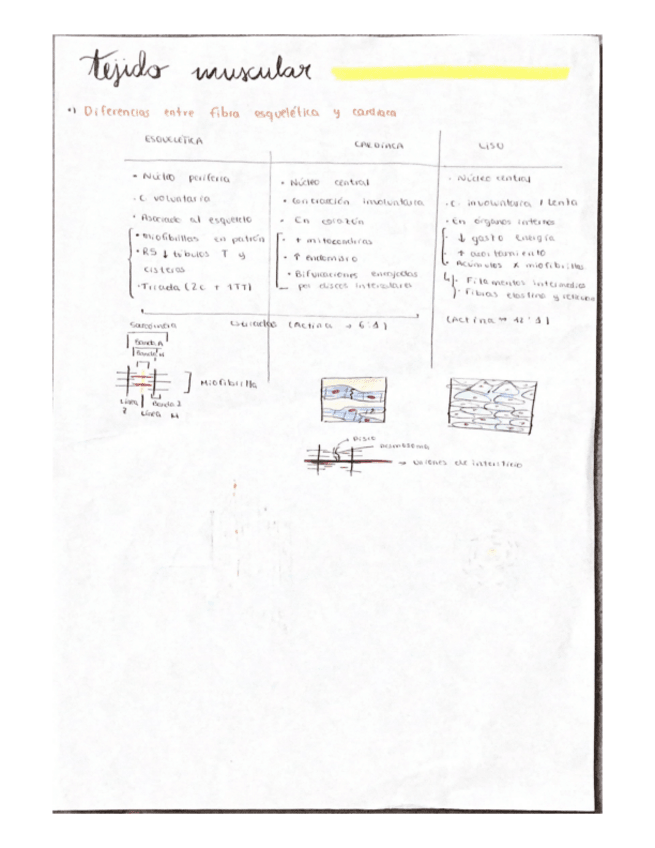 tejido muscular
•) Diferencias entre fibra esquelética y cardiaca
ESQUELÉTICA
CARDIACA
LISO
• Núcleo periferia
• C. voluntaria
• Asociado al esqueleto
• Miofibrillas en patrón
• RS ↓ túbulos T y
cisternas
• Triada (2C + 1TT)
• Núcleo central
• Contracción involuntaria
• En corazón
• + mitocondrias
• ↑ Endomisio
• Bifurcaciones
por discos intercalare
• Núcleo central
• C. involuntaria / lenta
• En órganos internos
• ↓ gasto energía
• + acortamiento
• Acúmulos x miofibrillas
Filamentos intermedios
Fibras elastina y
(Actina → 6:1)
(Actina → 12:1)
Sarcómero
Banda A
Banda H
Miofibrilla
Línea
Z
Banda I
Línea M
Disco
→ uniones de intersticio